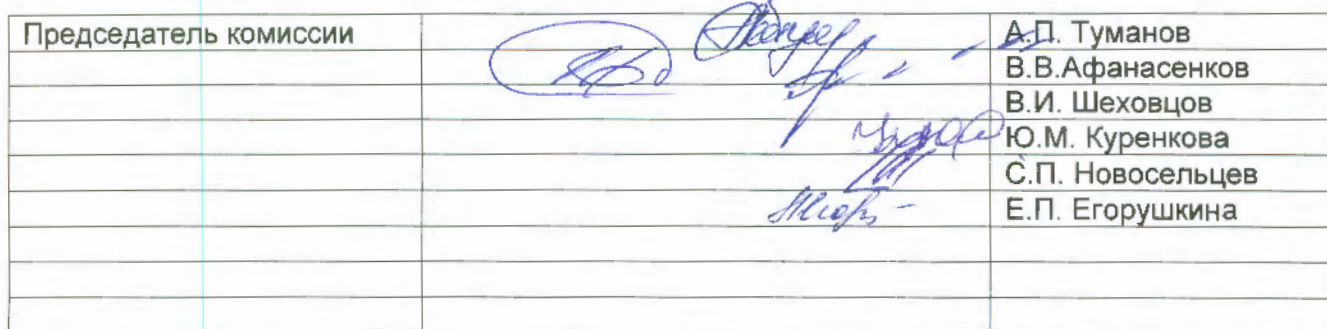 Председатель комиссии А.П. Туманов
В.В.Афанасенков
В.И. Шеховцов
Ю.М. Куренкова
С.П. Новосельцев
Е.П. Егорушкина